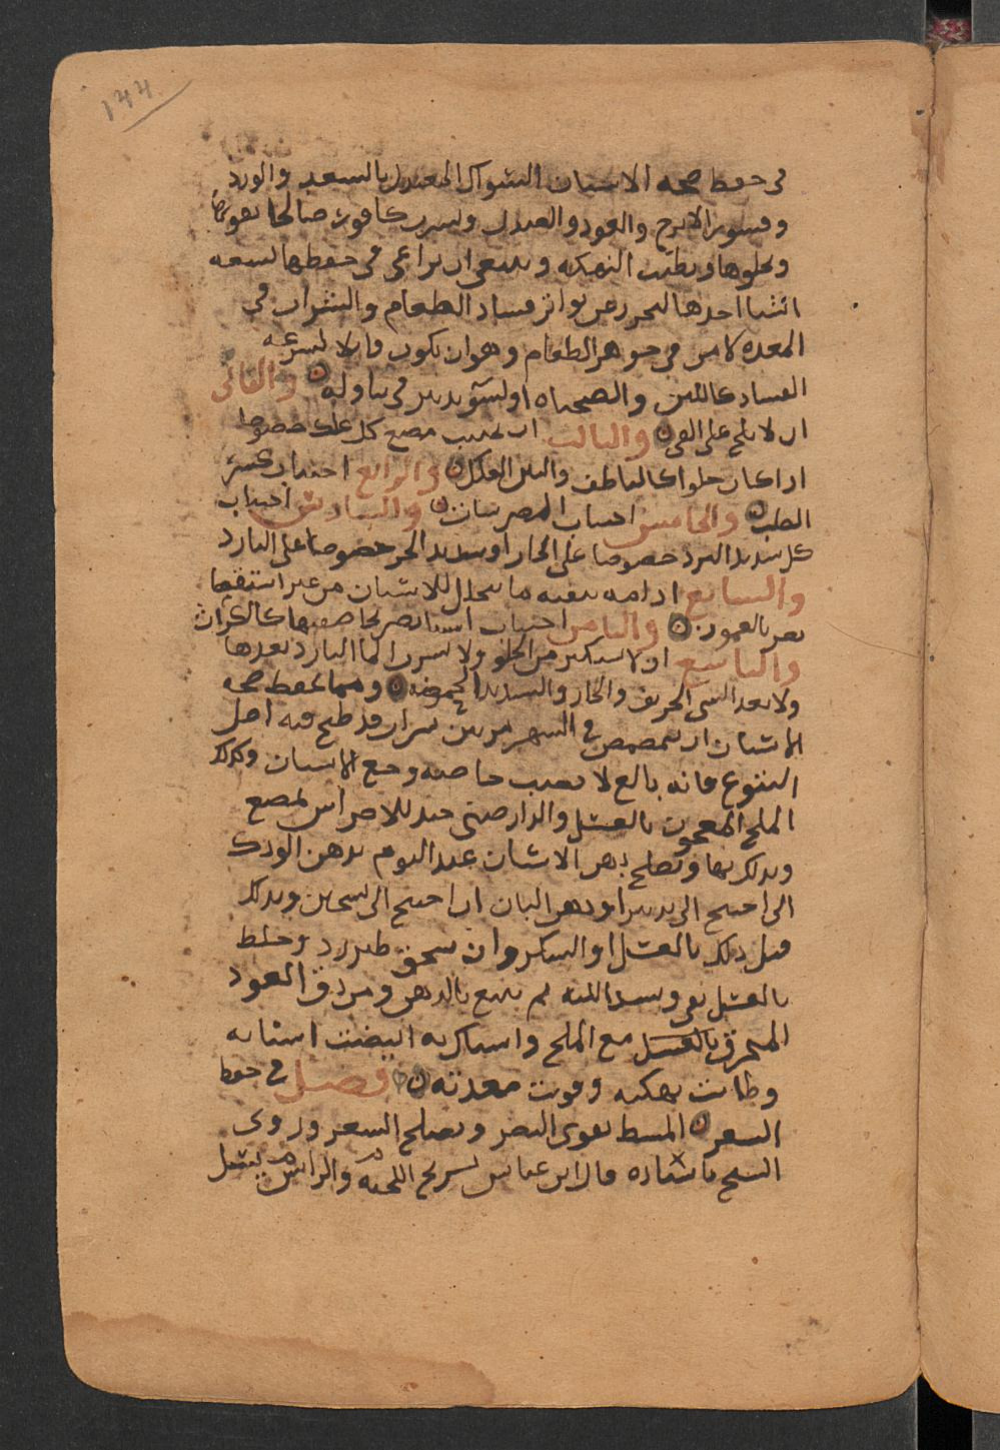 ١٤٤
في حفظ صحه الاسنان السواك المعتدل بالسعد والورد
وقشور الاترج والعود والصندل ويسير كافور صالحا يقويها
ويجلوها ويطيب النهكه وينبغي ان يراعي في حفظها تسعه
اشيا احدها التحرز عن تواتر فساد الطعام والشراب في
المعده لامر في جوهر الطعام وهو ان يكون قابلا لسرعه
الفساد كاللبن والصحناه او لسو تدبير في تناوله والثاني
ان لا يلح على القي والثالث ان يجتنب مضغ كل علك خصوصا
اذا كان حلوا كالناطف والتين العلك والرابع اجتناب كسر
الصلب والخامس اجتناب المضرسات والسادس اجتناب
كل شديد البرد خصوصا على الحار او شديد الحر خصوصا على البارد
والسابع ادامه تنقيه ما يتخلل للاسنان من غير استقصا
يضر بالعمور والثامن اجتناب اشيا تضر بخاصيتها كالكراث
والتاسع ان لا يستكثر من الحلو ولا يشرب الما البارد بعدها
ولا بعد الشي الحريف والحار والشديد الحموضه ومما يحفظ صحه
الاسنان ان يتمضمض في الشهر مرتين بشراب قد طبخ فيه اصل
اليتوع فانه بالغ لا يصيب صاحبه وجع الاسنان وكذلك
الملح المعجون بالعسل والدارصيني جيد للاضراس يمضغ
ويدلك بها ويصلح دهن الاسنان عند النوم بدهن الورد
ان احتيج الى تبريد او دهن البان ان احتيج الى تسخين ويدلك
قبل ذلك بالعسل او السكر وان سحق طبرزد وخلط
بالعسل نقى وشد اللثه ثم يتبع بالدهن ومن دق العود
المحرق بالعسل مع الملح واستاك به ابيضت اسنانه
وطابت نهكته وقويت معدته فصل في حفظ
الشعر المشط يقوي البصر ويصلح الشعر وروى
الشيخ باسناده قال ابن عباس تسريح اللحيه والراس يسل